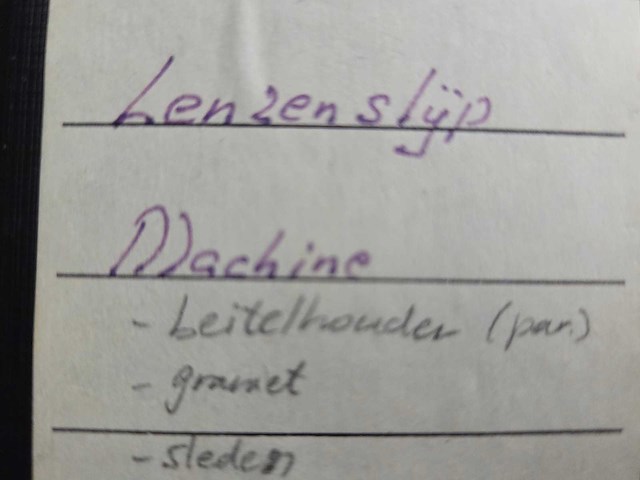 Lenzenslijp
Machine
- beitelhouder (par.)
- gramet
- sleden